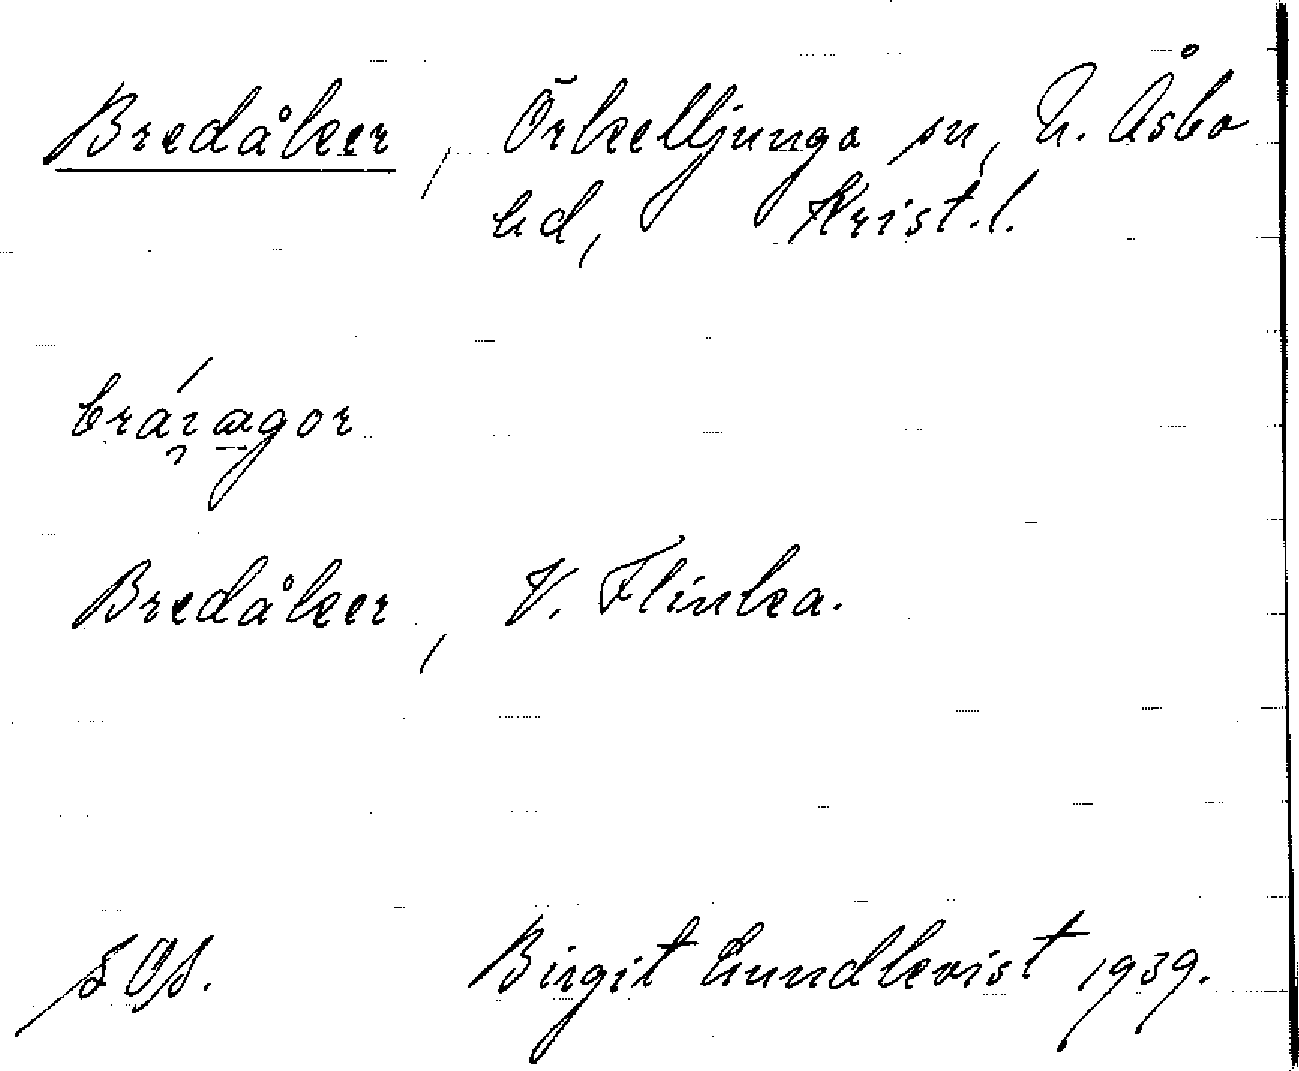 Bredåker, Örkelljunga sn, N. Åsbo
hd, Krist.l.
Bredåker, V. Flinka.
Birgit Lundkvist 1939.